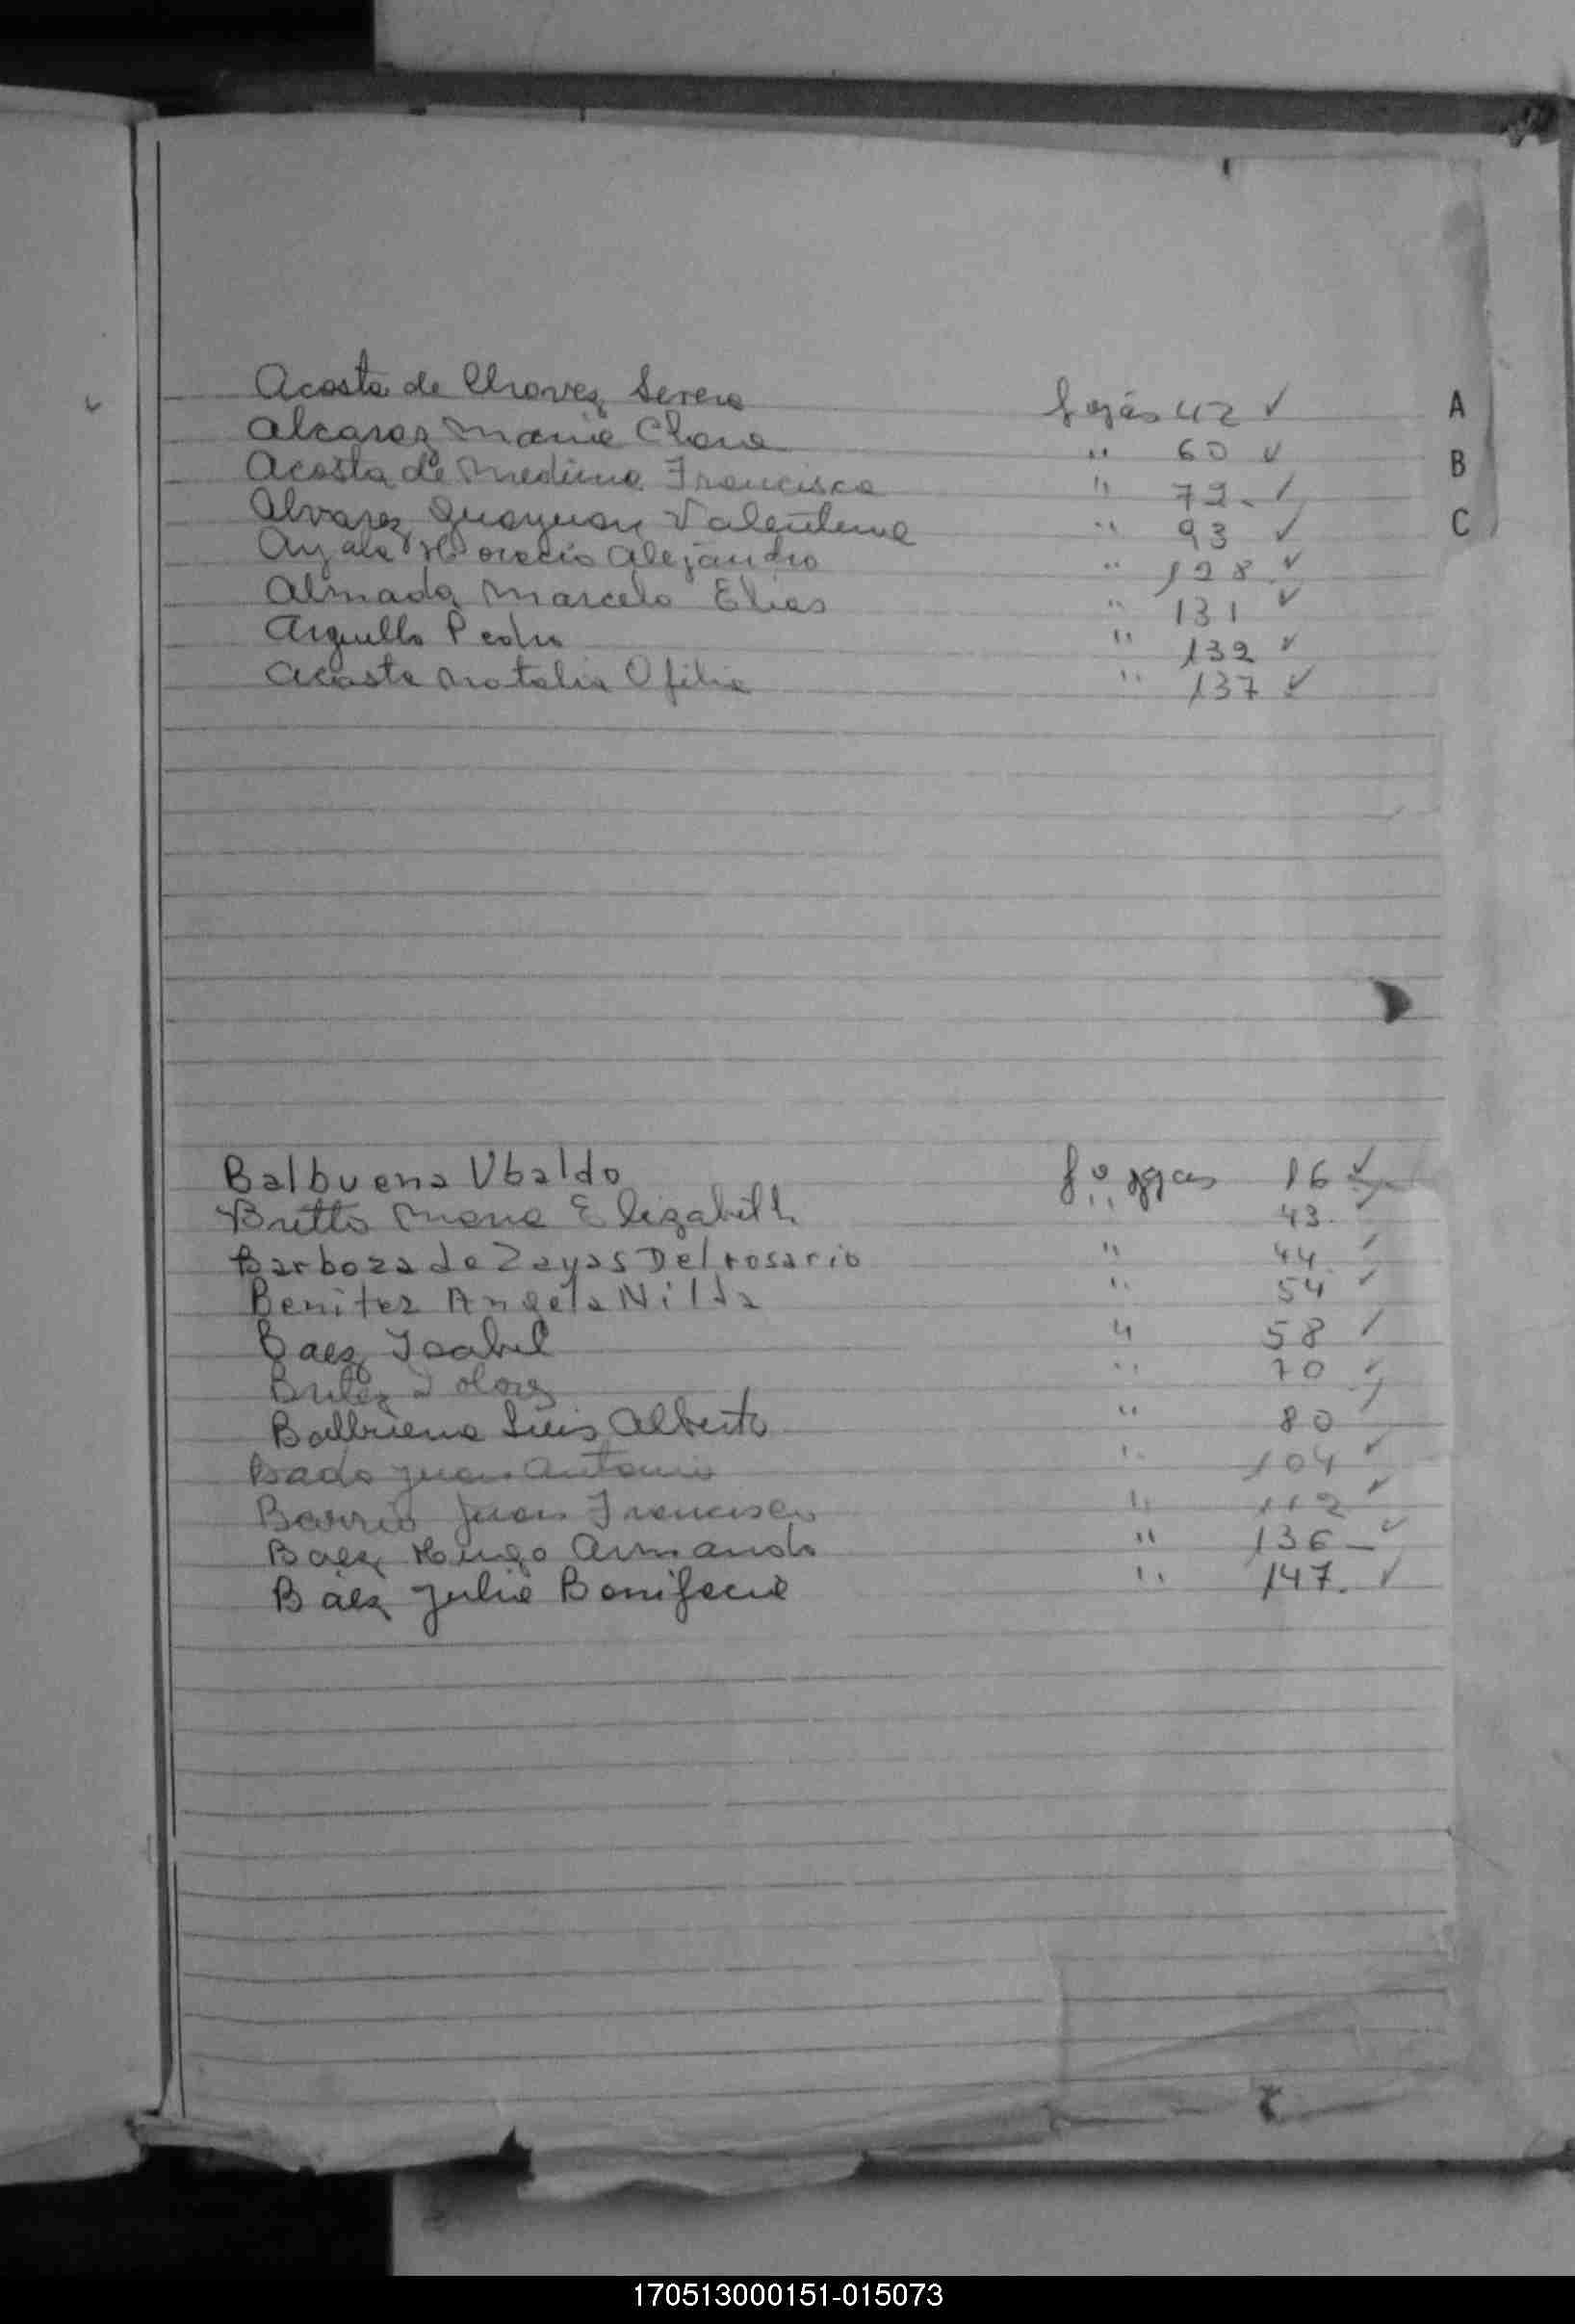 Acosta de Chavez Serera fojas 42 ✓ A
Alcaraz Maria Clara " 60 ✓ B
Acosta de Medina Francisca " 72 ✓
Alvarez Guayuan Valentina " 93 ✓ C
Ayala Horacio Alejandro " 128 ✓
Almada Marcelo Elias " 131 ✓
Arguello Pedro " 132 ✓
Acosta Natalia Ofilia " 137 ✓
Balbuena Ubaldo 16 ✓
Britto Maria Elizabeth " 43 ✓
Barboza de Zayas Del rosario " 44 ✓
Benitez Angela Nilda " 54 ✓
Baez Isabel " 58 ✓
Britez " 70 ✓
Balbuena Luis Alberto " 80 ✓
Bado Juan Antonio " 104 ✓
Barrio Juan Francisco " 112 ✓
Baez Hugo Armando " 136 ✓
Báez Julio Bonifacio " 147 ✓
170513000151-015073